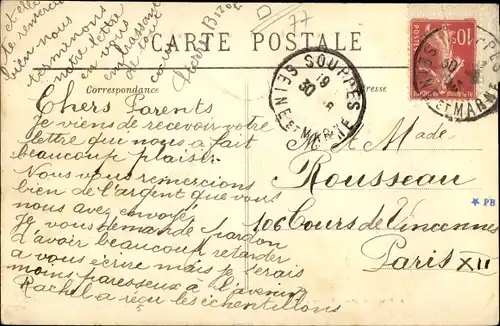 CARTE POSTALE
Correspondance
Adresse
Chers Parents
Je viens de recevoir votre
lettre qui nous a fait
beaucoup plaisir.
Nous vous remercions
bien de l'argent que vous
nous avez envoyés
Je vous demande pardon
d'avoir beaucoup retarder
a vous écrire mais je serais
moins paresseux à l'avenir
Rachel a reçu les échantillons
et elle
le remercie
bien nous
terminons
notre lettre
en vous
embrassant
de tout
coeur
77
M. et Made
Rousseau
106 Cours de Vincennes
Paris XII
SOUPPES
19
30 - 8
SEINE ET MARNE
10c
POSTES
SOUPPES
30
SEINE ET MARNE
* PB